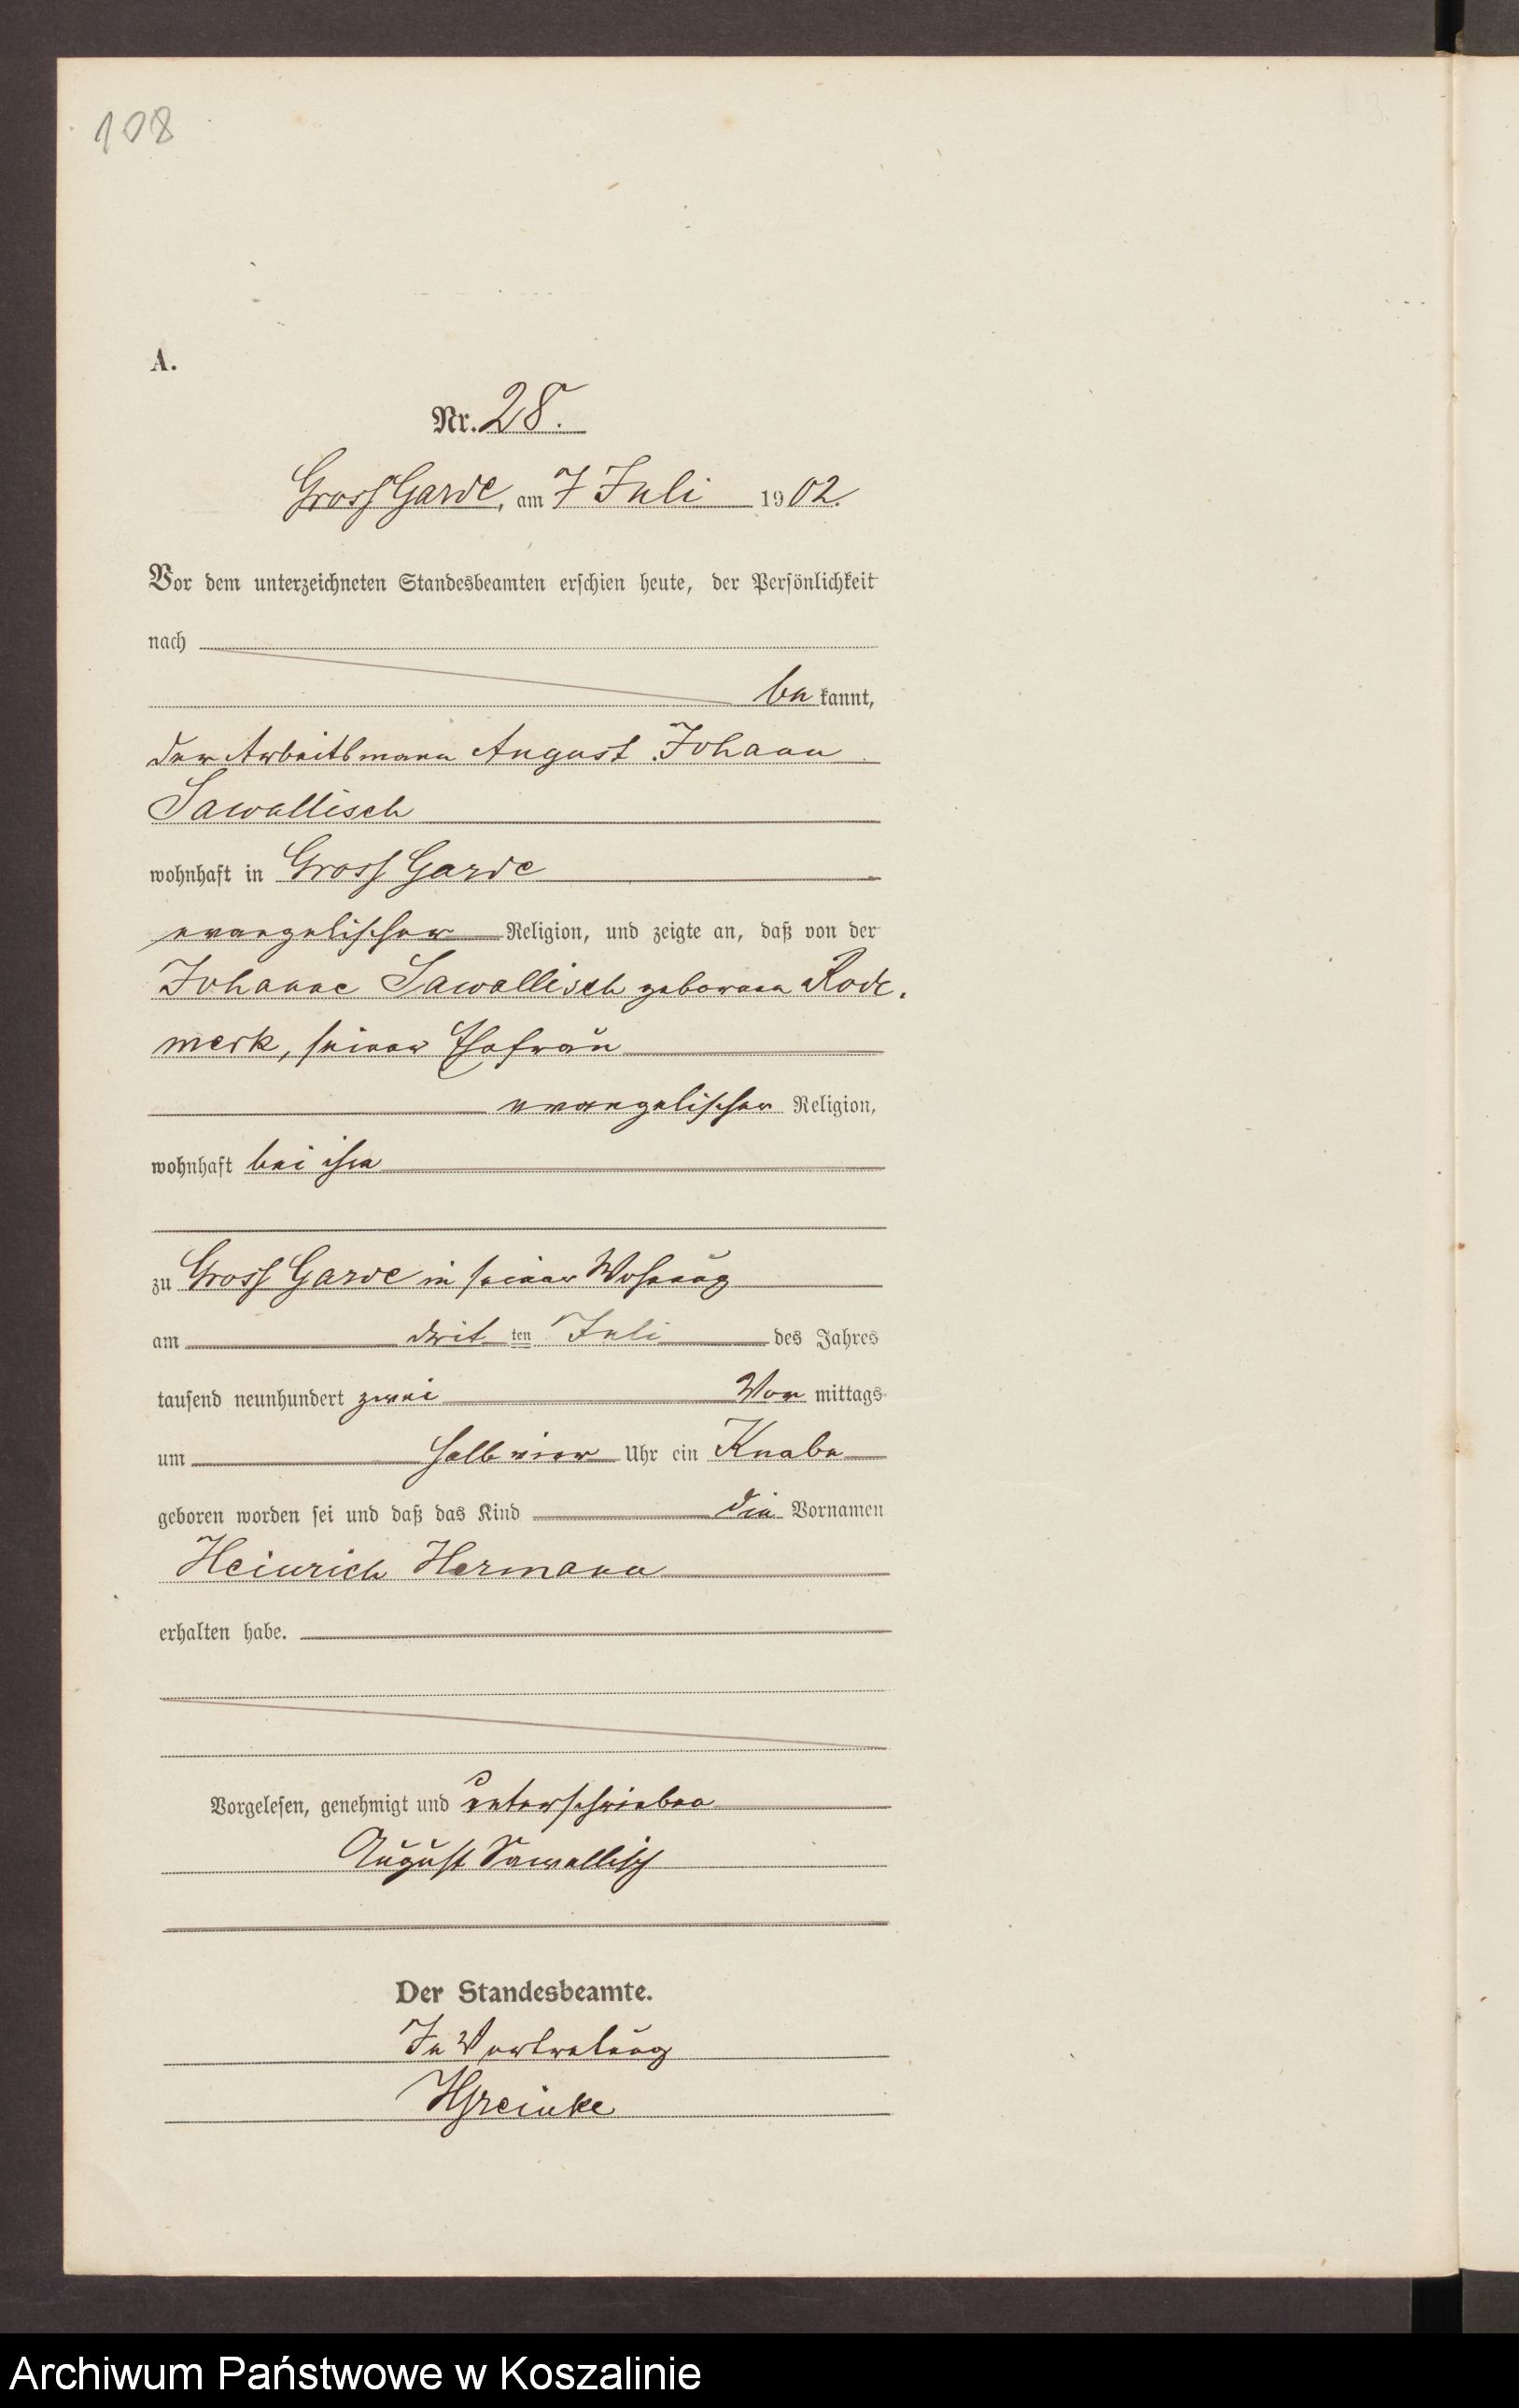 108
A.
Nr. 28.
Gross Garde, am 7 Juli 1902.
Vor dem unterzeichneten Standesbeamten erschien heute, der Persönlichkeit
nach
be kannt,
der Arbeitsmann August Johann
Sawallisch
wohnhaft in Gross Garde
evangelischer Religion, und zeigte an, daß von der
Johanne Sawallisch geborenen Rode-
merk, seiner Ehefrau
evangelischer Religion,
wohnhaft bei ihm
zu Gross Garde in seiner Wohnung
am drit ten Juli des Jahres
tausend neunhundert zwei Vor mittags
um halb vier Uhr ein Knabe
geboren worden sei und daß das Kind die Vornamen
Heinrich Hermann
erhalten habe.
Vorgelesen, genehmigt und unterschrieben
August Sawallisch
Der Standesbeamte.
In Vertretung
Archiwum Państwowe w Koszalinie